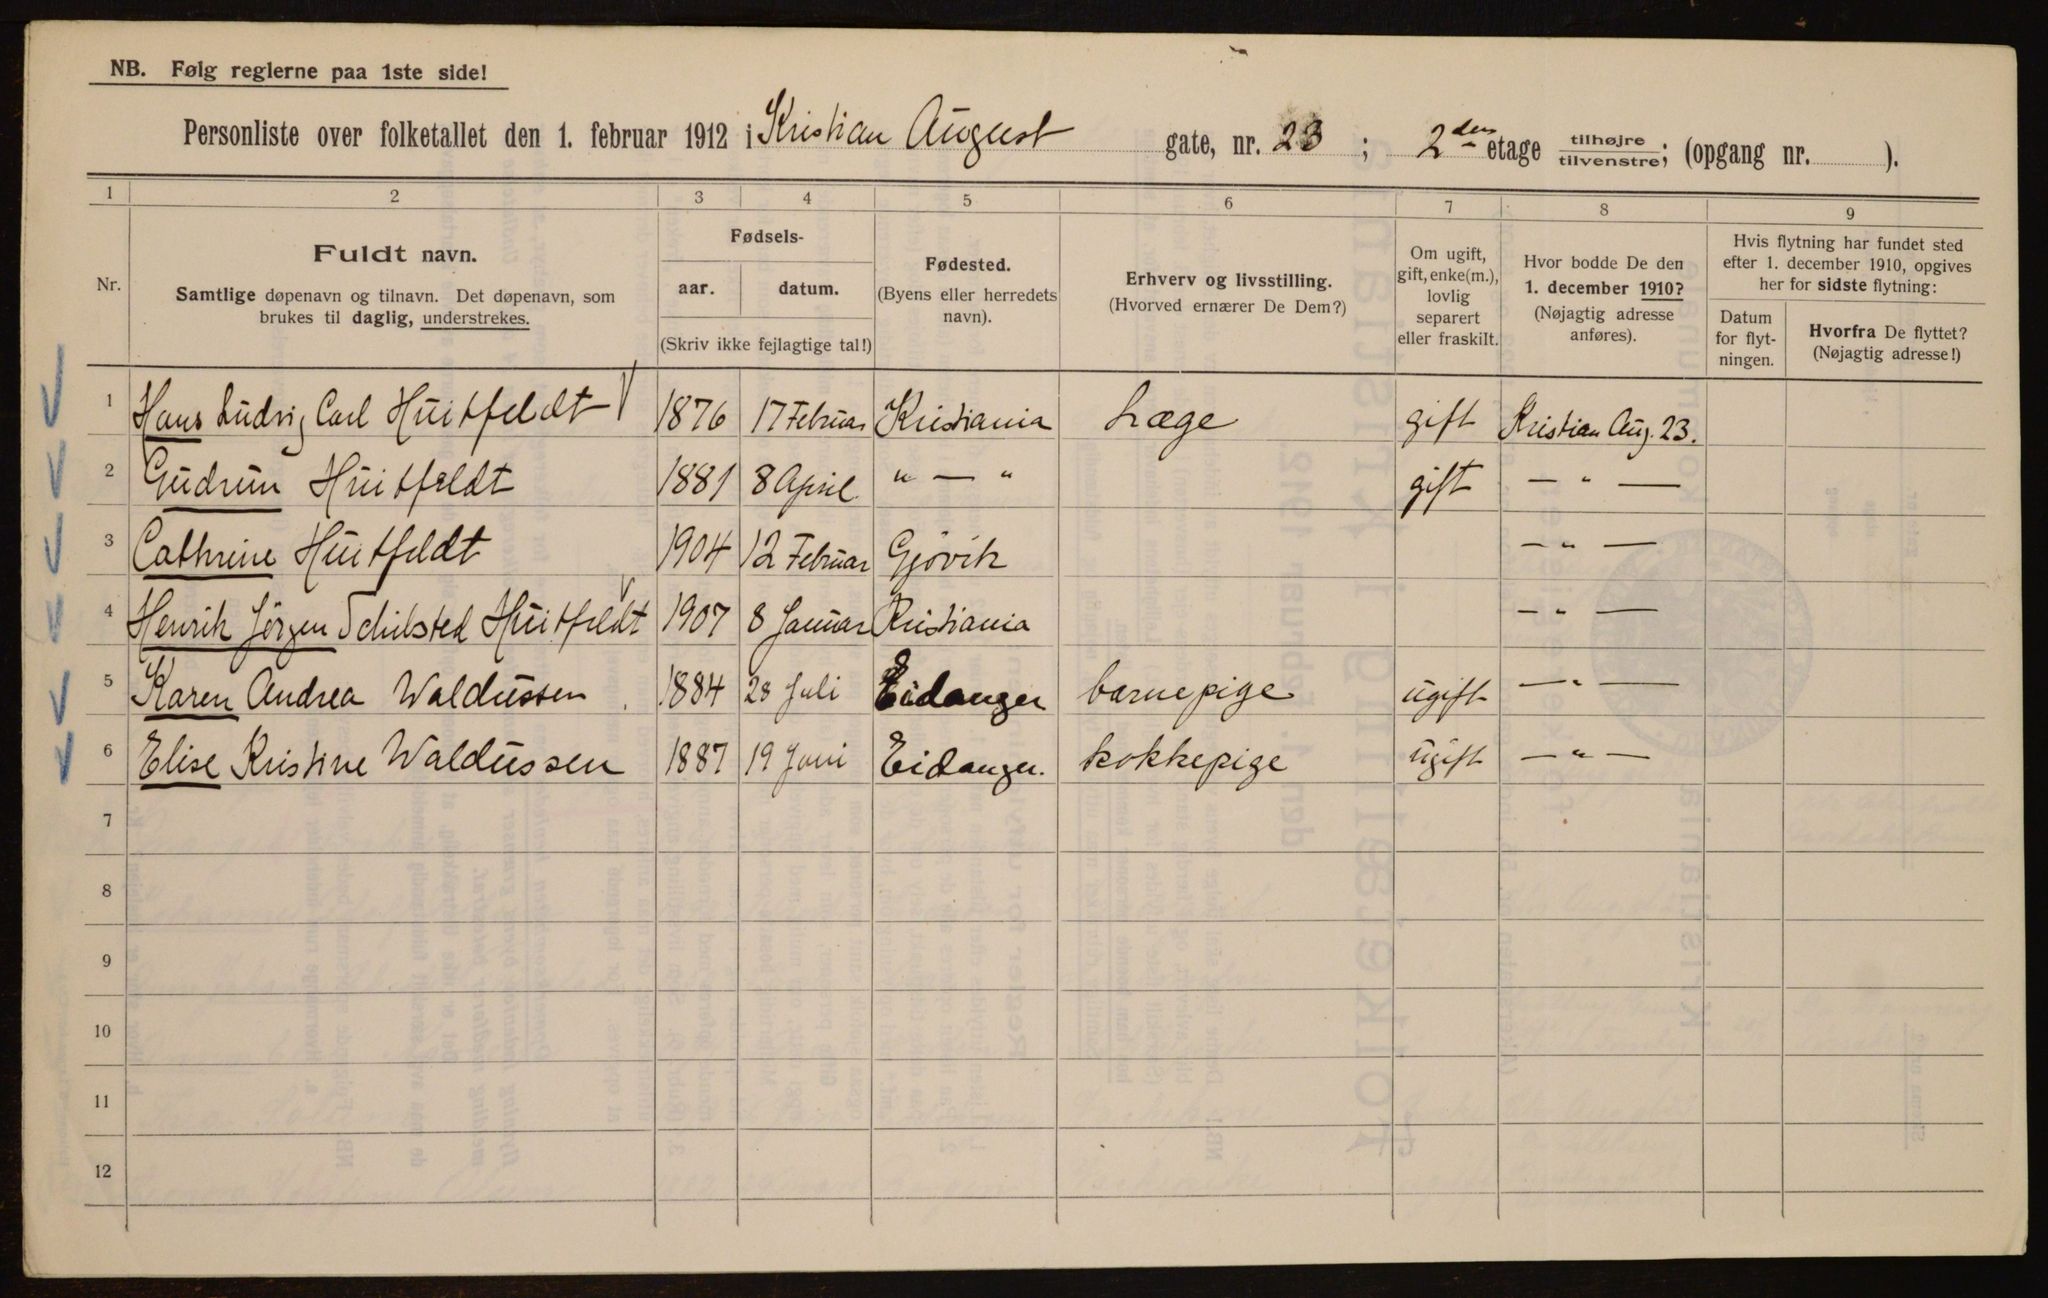 NB. Følg reglerne paa 1ste side!
Personliste over folketallet den 1. februar 1912 i Kristian August gate, nr. 23 ; 2den etage tilhøjre tilvenstre; (opgang nr. ).
1 2 3 4 5 6 7 8 9
Nr.
Fuldt navn.
Samtlige døpenavn og tilnavn. Det døpenavn, som
brukes til daglig, understrekes.
Fødsels-
aar. datum.
(Skriv ikke fejlagtige tal!)
Fødested.
(Byens eller herredets
navn).
Erhverv og livsstilling.
(Hvorved ernærer De Dem?)
Om ugift,
gift, enke(m.),
lovlig
separert
eller fraskilt.
Hvor bodde De den
1. december 1910?
(Nøjagtig adresse
anføres).
Hvis flytning har fundet sted
efter 1. december 1910, opgives
her for sidste flytning:
Datum
for flyt-
ningen.
Hvorfra De flyttet?
(Nøjagtig adresse!)
1 Hans Ludvig Carl Huitfeldt 1876 17 Februar Kristiania Læge gift Kristian Aug. 23.
2 Gudrun Huitfeldt 1881 8 April " — " gift — " —
3 Cathrine Huitfeldt 1904 12 Februar Gjövik — " —
4 Henrik Jörgen Schibsted Huitfeldt 1907 8 Januar Kristiania — " —
5 Karen Andrea Waldussen 1884 28 Juli Eidanger barnepige ugift — " —
6 Elise Kristine Waldussen 1887 19 Juni Eidanger. kokkepige ugift — " —
7
8
9
10
11
12